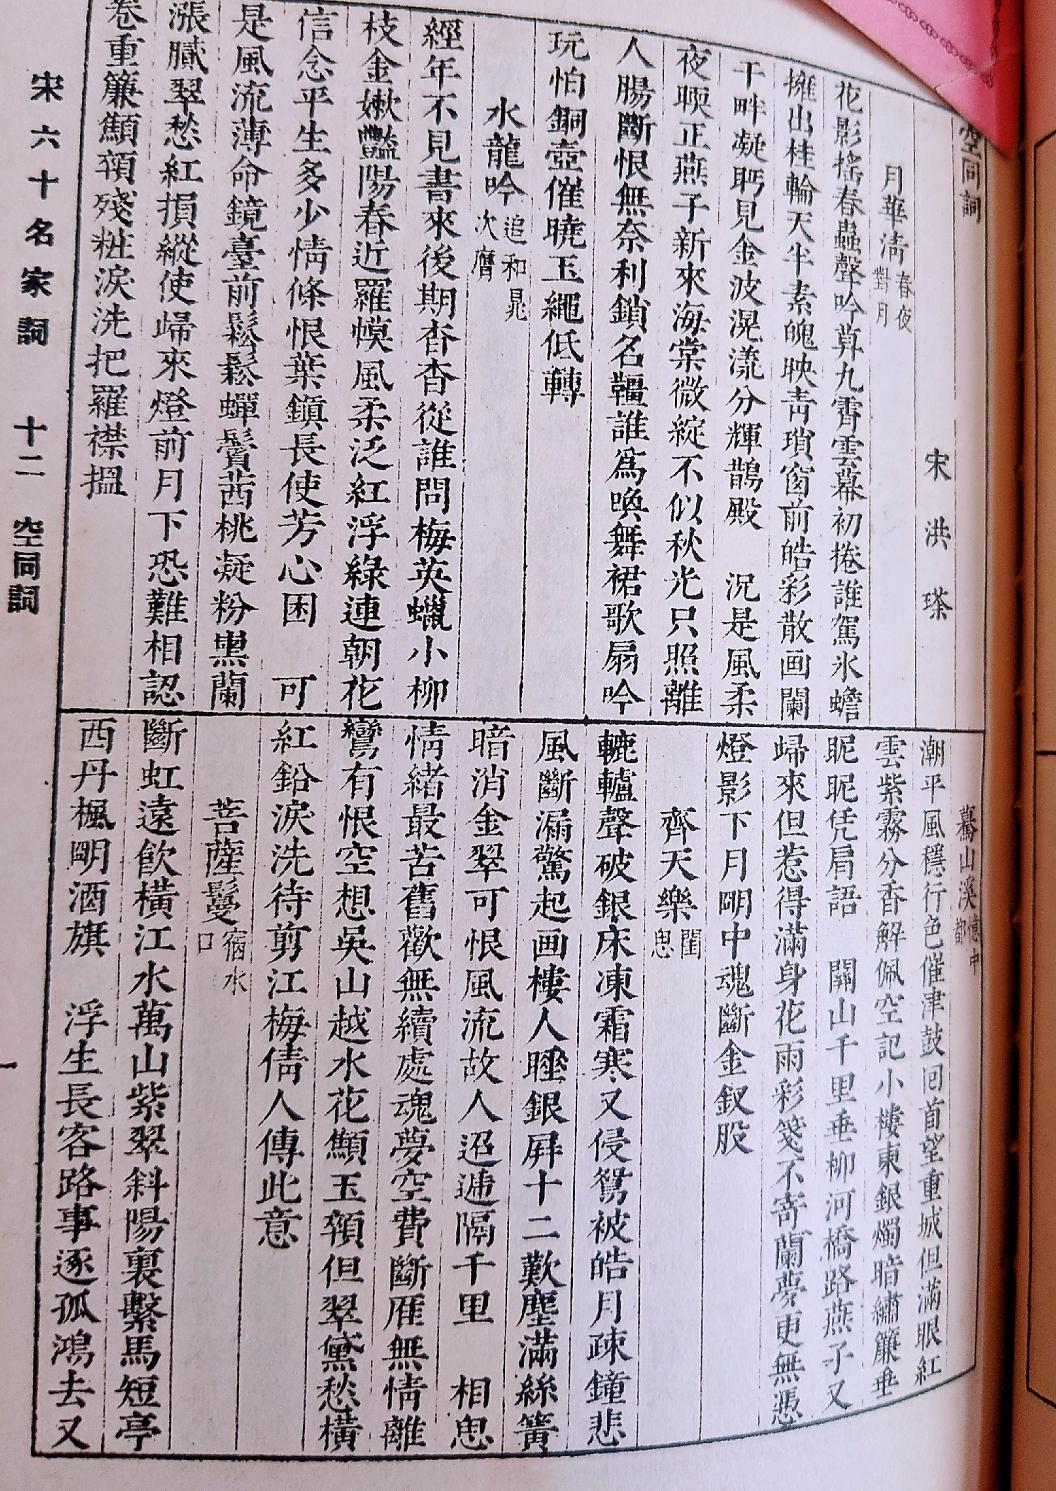 空同詞
宋 洪 瑹
月華淸 春夜對月
花影搖春蟲聲吟暮九霄雲幕初捲誰駕氷蟾
擁出桂輪天半素魄映靑瑣窗前皓彩散画闌
干畔凝眄見金波滉漾分輝鵲殿 況是風柔
夜暝正燕子新來海棠微綻不似秋光只照離
人腸斷恨無奈利鎖名韁誰爲喚舞裙歌扇吟
玩怕銅壺催曉玉繩低轉
水龍吟 追和晁次膺
經年不見書來後期杳杳從誰問梅英蠟小柳
枝金嫩豔陽春近羅幙風柔泛紅浮綠連朝花
信念平生多少情條恨葉鎭長使芳心困 可
是風流薄命鏡臺前鬆鬆蟬鬢茜桃凝粉黑蘭
漲膩翠愁紅損縱使歸來燈前月下恐難相認
卷重簾顦顇殘粧淚洗把羅襟搵
驀山溪 憶中都
潮平風穩行色催津鼓回首望重城但滿眼紅
雲紫霧分香解佩空記小樓東銀燭暗繡簾垂
昵昵凭肩語 關山千里垂柳河橋路燕子又
歸來但惹得滿身花雨彩箋不寄蘭夢更無憑
燈影下月明中魂斷金釵股
齊天樂 閨思
轆轤聲破銀床凍霜寒又侵鴛被皓月疎鐘悲
風斷漏驚起画樓人睡銀屛十二歎塵滿絲簧
暗消金翠可恨風流故人迢遞隔千里 相思
情緒最苦舊歡無續處魂夢空費斷雁無情離
鸞有恨空想吳山越水花顦玉顇但翠黛愁橫
紅鉛淚洗待剪江梅倩人傳此意
菩薩鬘 宿水口
斷虹遠飮橫江水萬山紫翠斜陽裏繫馬短亭
西丹楓明酒旗 浮生長客路事逐孤鴻去又
宋六十名家詞 十二 空同詞
一